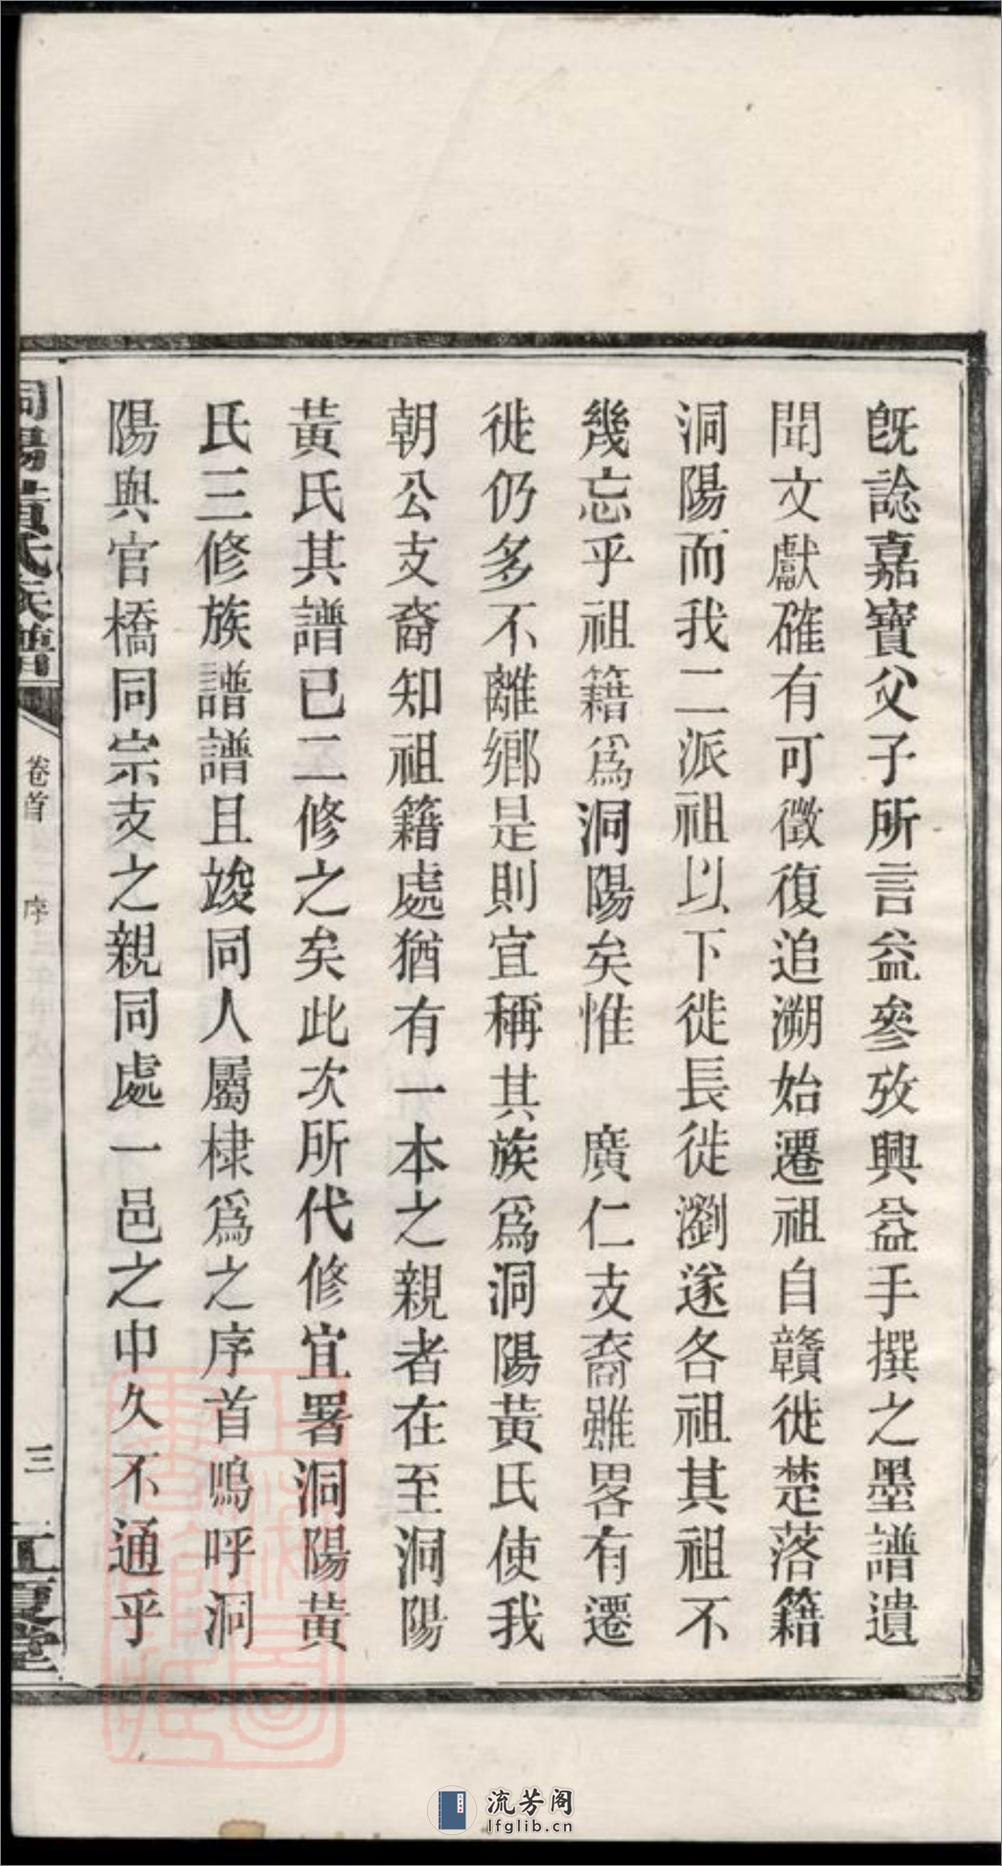 旣諗嘉寶父子所言益參攷興益手撰之墨譜遺
聞文獻確有可徵復追溯始遷祖自贛徙楚落籍
洞陽而我二派祖以下徙長徙瀏遂各祖其祖不
幾忘乎祖籍爲洞陽矣惟　廣仁支裔雖畧有遷
徙仍多不離鄉是則宜稱其族爲洞陽黃氏使我
朝公支裔知祖籍處猶有一本之親者在至洞陽
黃氏其譜已二修之矣此次所代修宜署洞陽黃
氏三修族譜譜且竣同人屬棣爲之序首嗚呼洞
陽與官橋同宗支之親同處一邑之中久不通乎
洞陽黃氏族譜
卷首
序
三
江夏堂
流芳阁
lfglib.cn